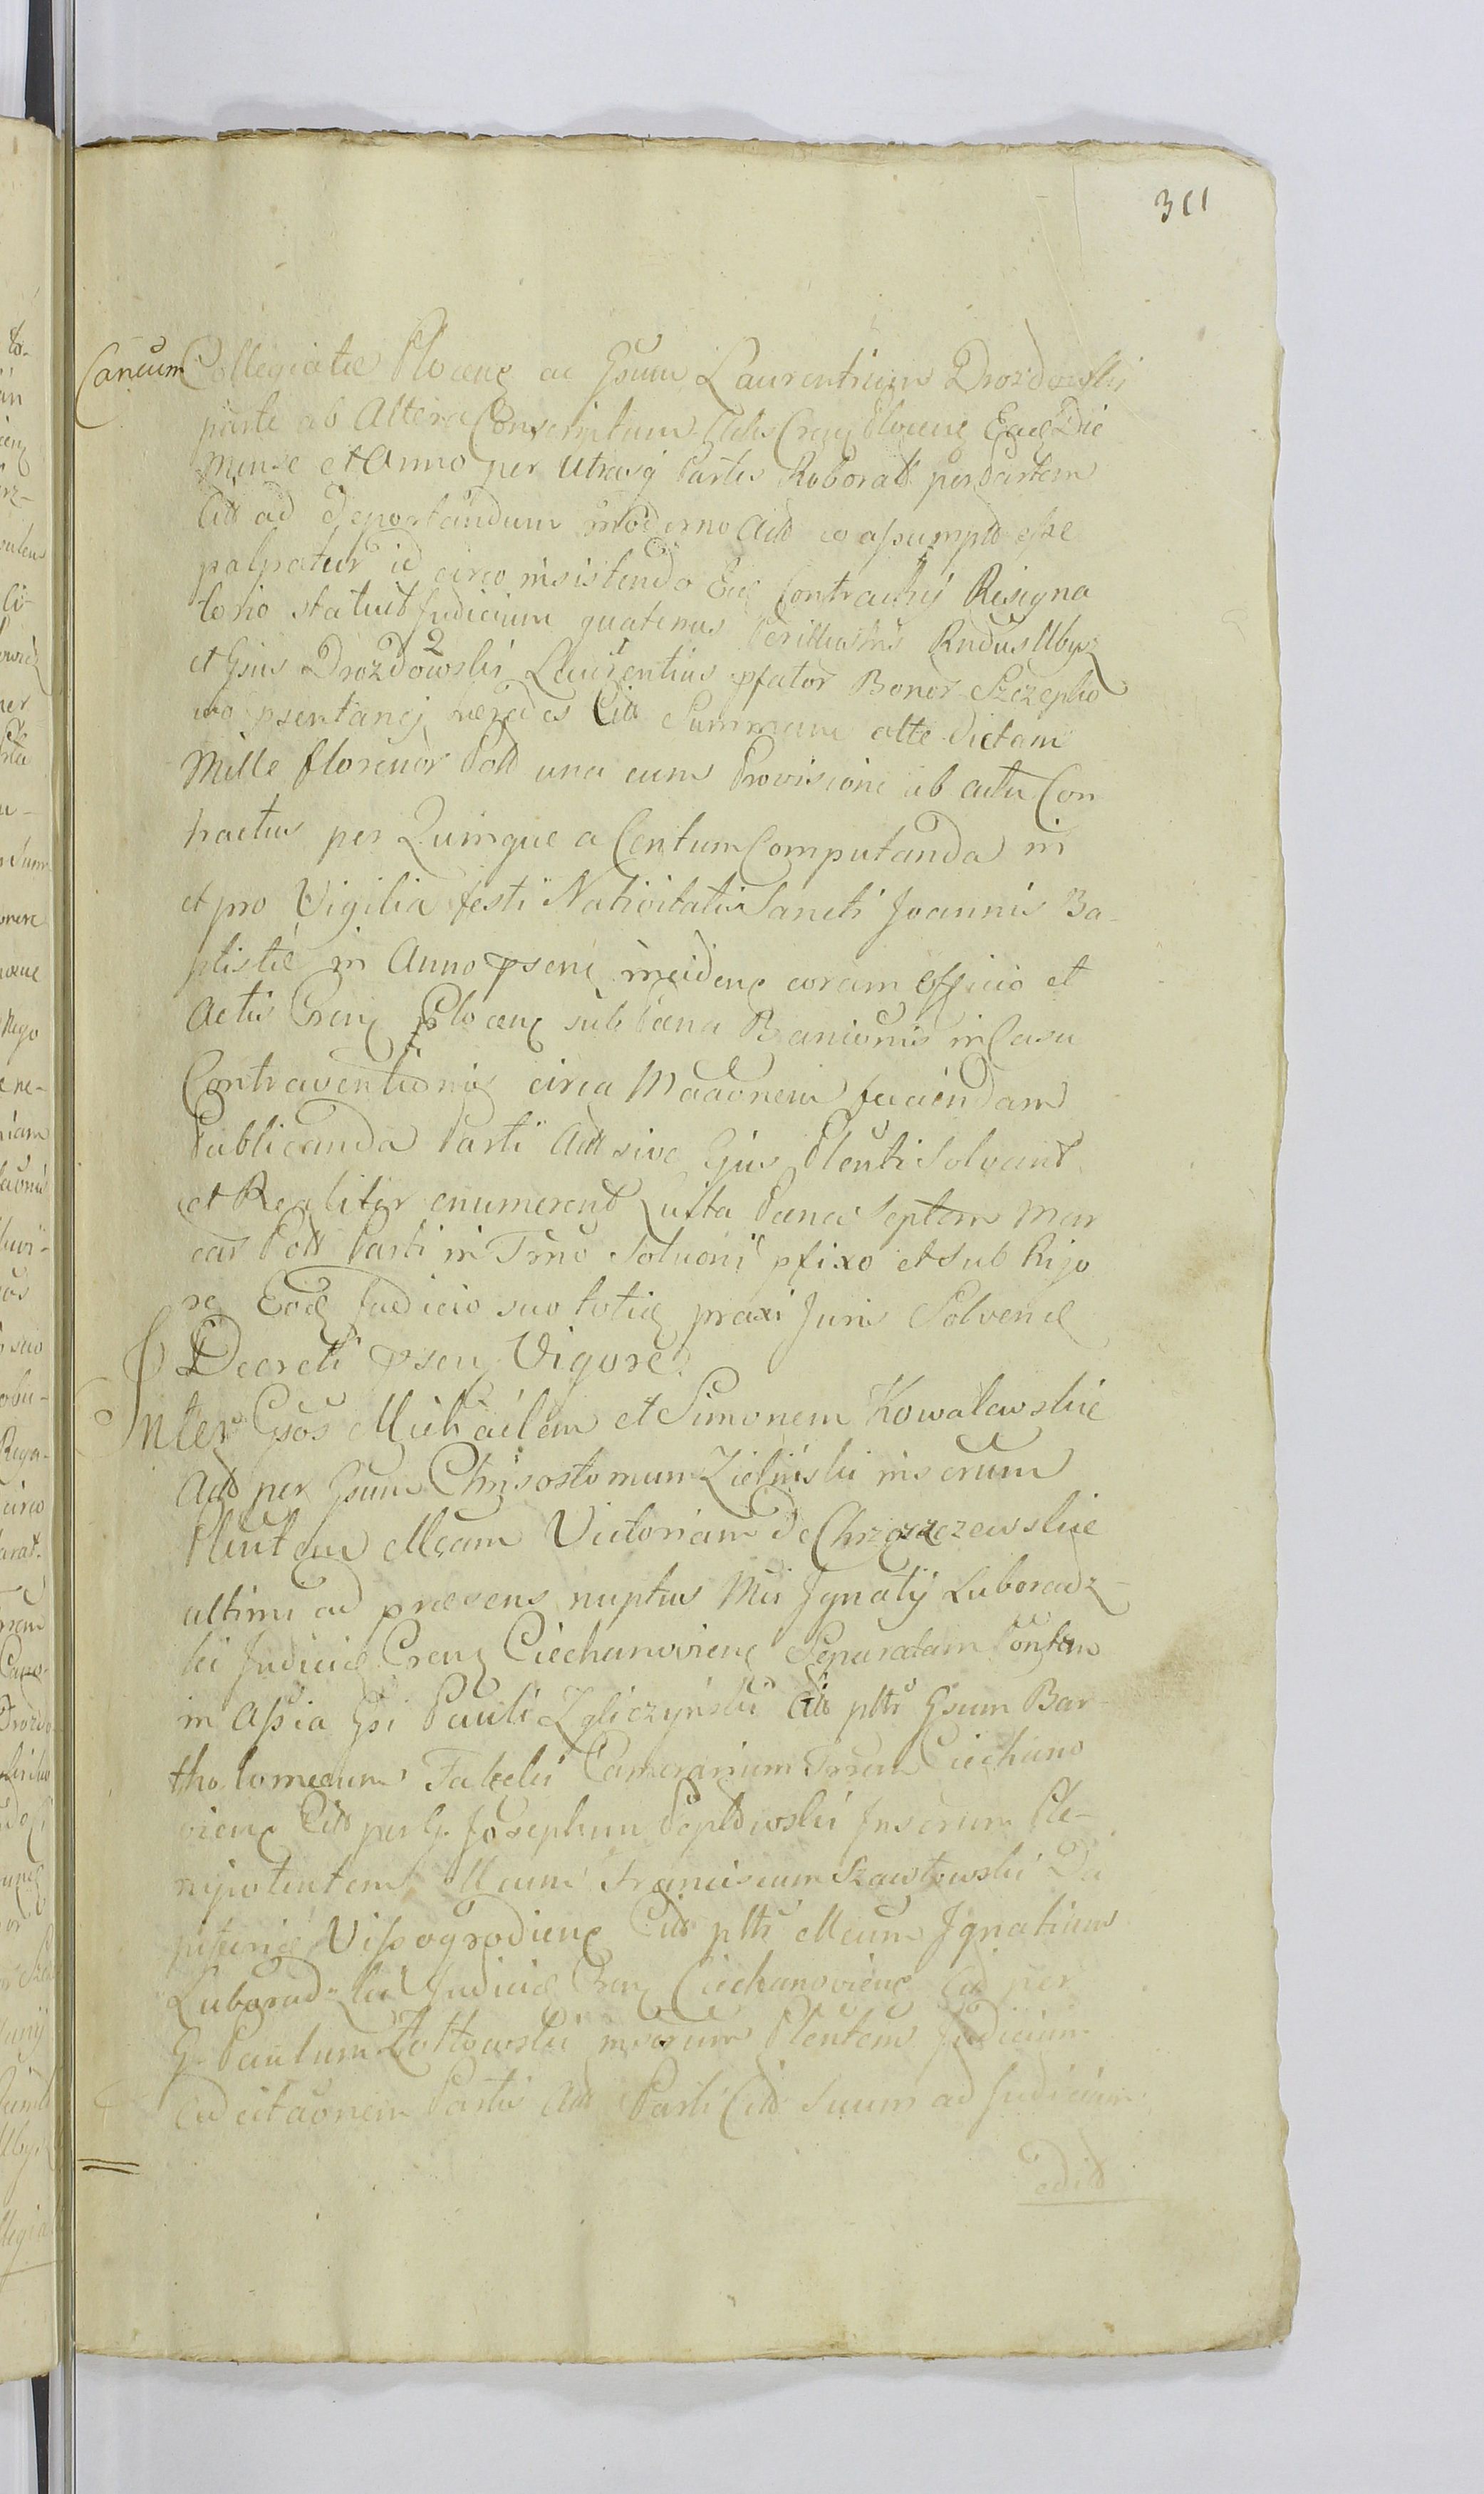 311
Cancum Collegiatæ Plocenę ac Gsum Laurentium Drozdowski
parte ab Altera Conscriptum Actis Crenę Plocenę Eade Die
Mense et Anno per Utrasq Partes Roboratt per Partem
Citt ad deportandum moderno Actt co assumptt esse
palpatur id circo insistendo Eid Contractuj Resigna
torio statuit Judicium quatenus Perillustris Rndus Ubysz
et Gsus Drozdowski 2 Laurentius 1 pfator Bonor Szczepko
wo psentanej hæredes Citt Summam atte dictam
Mille florenor Poltt una cum Provisione ab actu Con
tractus per Quinque a Centum Computanda in
et pro Vigilia festi Nativitatis Sancti Joannis Ba-
ptistæ in Anno psenę incidenę coram Officio et
Actis Crenę Plocenę sub Pæna Banionis in Casu
Contraventionis circa Maaonem faciendam
Publicanda Parti Actt sive Ejus Plenti Solvant
et Realiter enumerent Luita Pæna Septem Mar
car Poltt Parti in Trno Solucni pfixo et sub Rigo
re Eod Judicio suo totię praxi Juris Solvend
Decreti psenę Vigore
Inter Gsos Michaelem et Simonem Kowalewskie
Actt per Gsum Chrisostomum Zielinski inscrum
Plentem Mcam Victoriam de Chrzęszczewskie
ultimi ad præsens nuptus Mci Ignatij Luboradz-
ki Judicis Crenę Ciechanovienę Separatam Conten
in Assia Gsi Pauli Zgliczynski Citt pltr Gsum Bar-
tholomeum Falęcki Camerarium Trrem Ciechano
vienę Citt per G. Josephum Peplowski Inscrum Ple-
nipotentem Mcum Franciscum Szawłowski Da
piferidę Vissogrodienę Citt pltr Mcum Ignatium
Luboradzki Judicię Crenę Ciechanovienę Citt per
G. Paulum Żółtowski inscrum Plentem Judicium
Ad citaonem Partis Actt Parti Citt Suum ad Judicium
editt